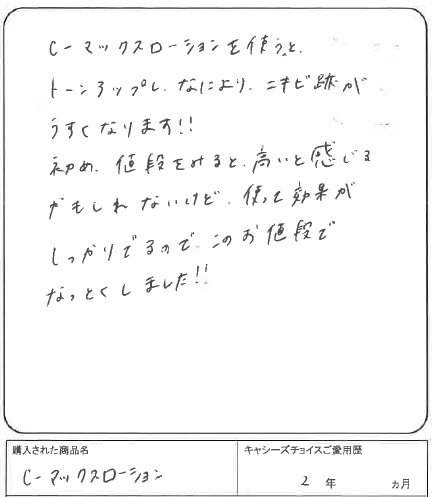 C-マックスローションを使うと、
トーンアップし、なにより、ニキビ跡が
うすくなります!!
初め、値段をみると、高いと感じる
かもしれないけど、使って効果が
しっかりでるので、このお値段で
なっとくしました!!
購入された商品名
C-マックスローション
キャシーズチョイスご愛用歴
2 年 ヵ月